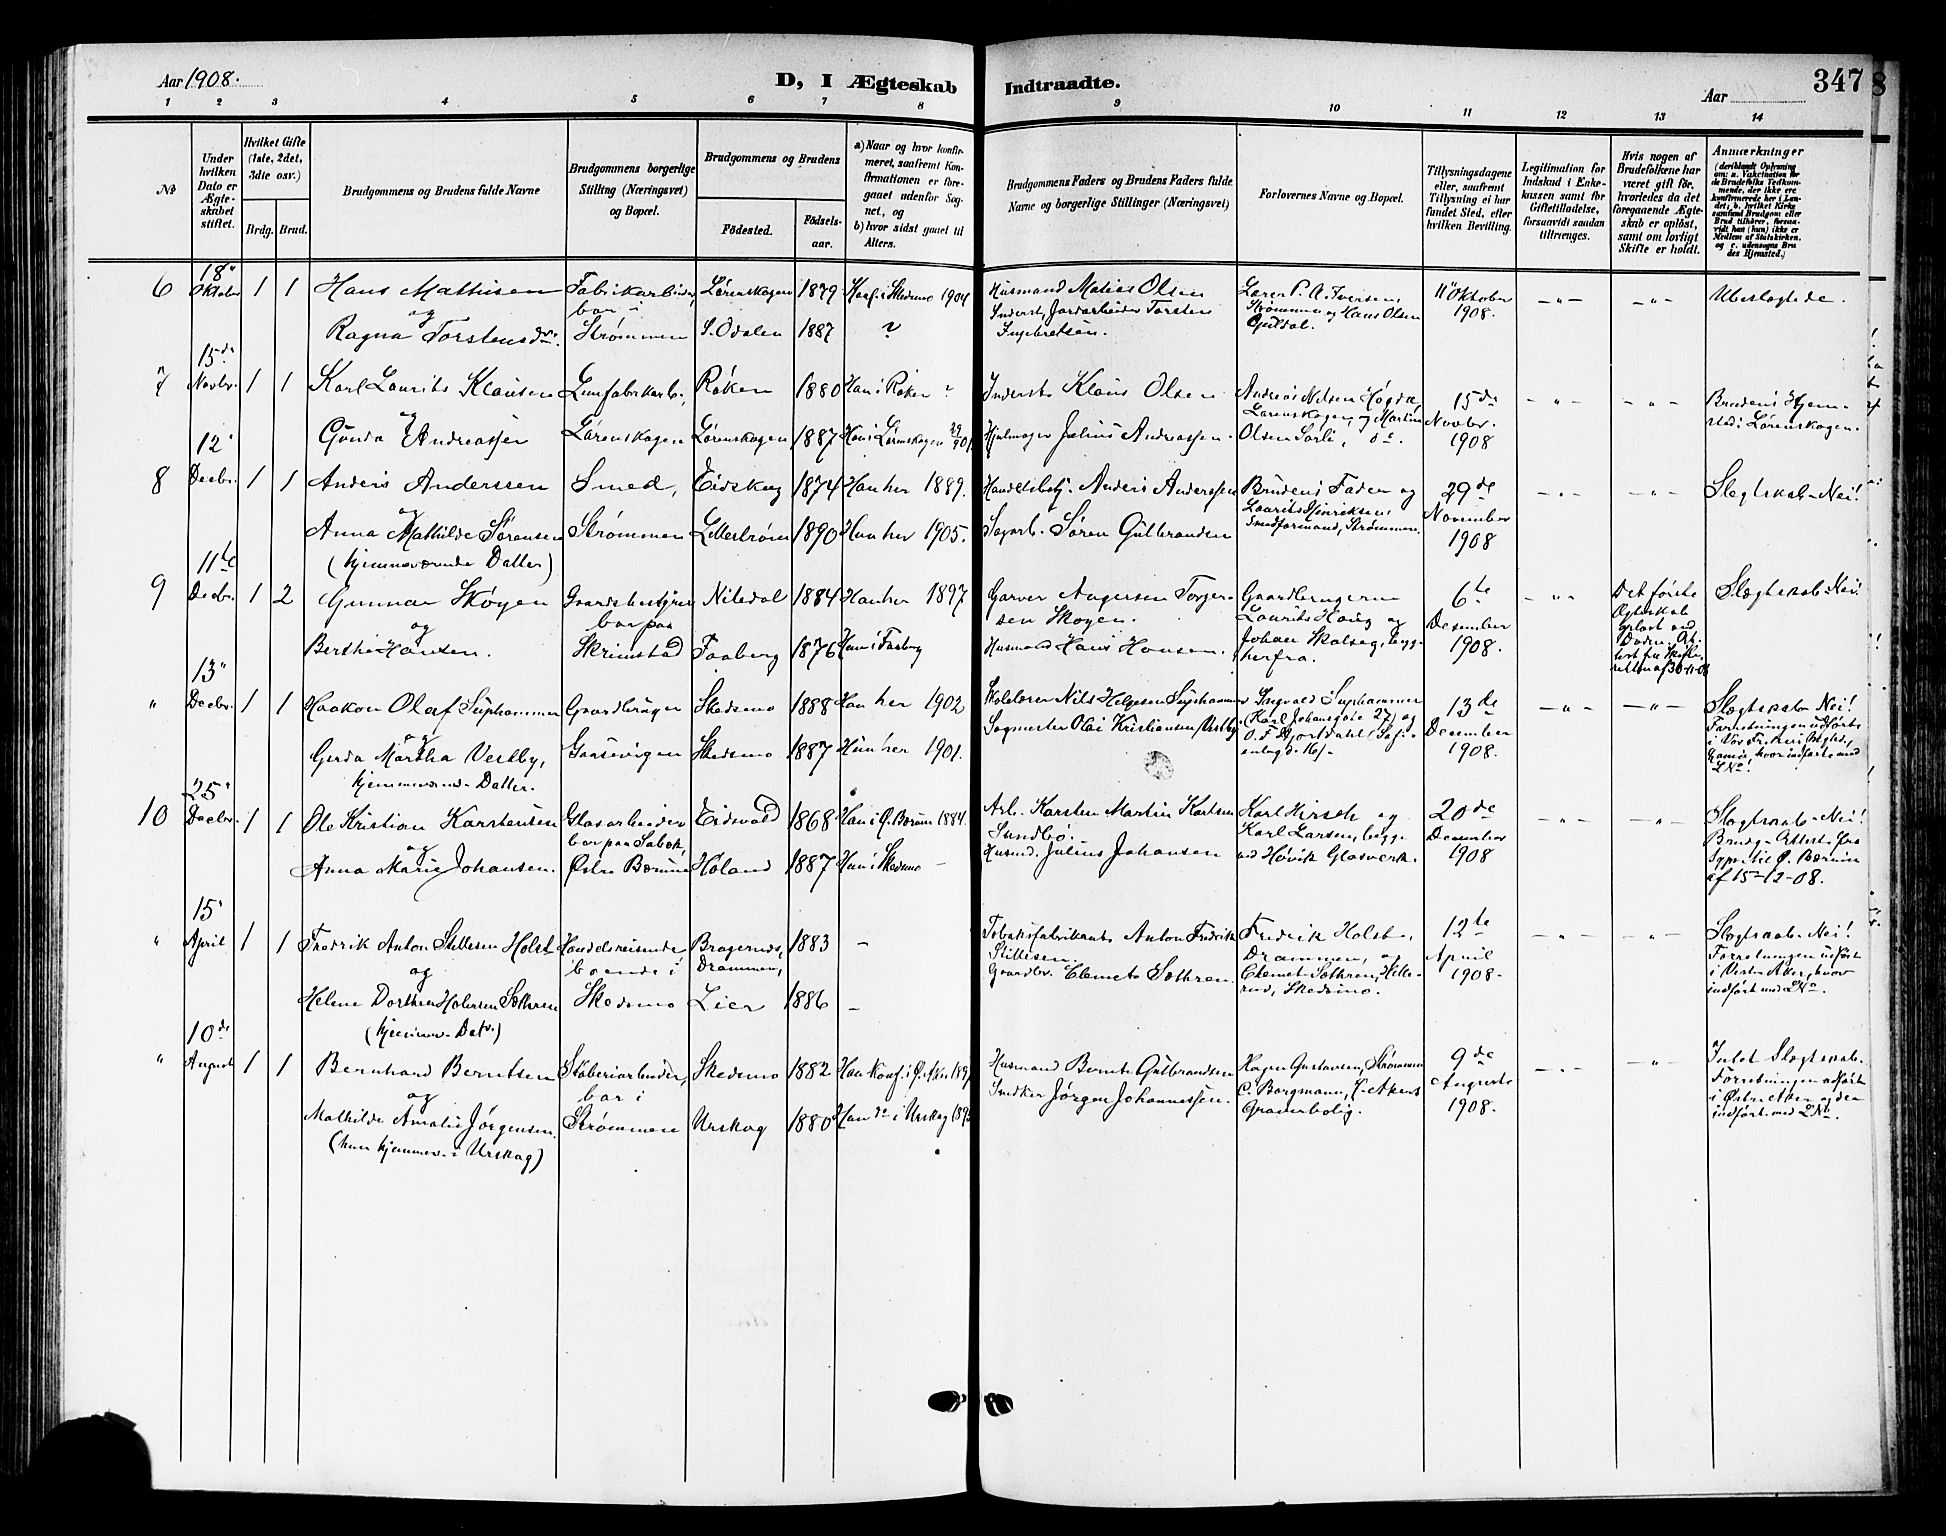 Aar 1908.
D, I Ægteskab
Indtraadte.
Aar
347
1 2 3 4 5 6 7 8 9 10 11 12 13 14
No
Under hvilken Dato er Ægteskabet stiftet.
Hvilket Gifte (1ste, 2det, 3die osv.)
Brdg. Brud.
Brudgommens og Brudens fulde Navne
Brudgommens borgerlige Stilling (Næringsvei) og Bopæl.
Brudgommens og Brudens
Fødested.
Fødselsaar.
a) Naar og hvor konfirmeret, saafremt Konfirmationen er foregaaet udenfor Sognet, og
b) hvor sidst gaaet til Alters.
Brudgommens Faders og Brudens Faders fulde Navne og borgerlige Stillinger (Næringsvei)
Forlovernes Navne og Bopæl.
Tillysningsdagene eller, saafremt Tillysning ei har fundet Sted, efter hvilken Bevilling.
Legitimation for Indskud i Enkekassen samt for Giftetilladelse, forsaavidt saadan tiltrænges.
Hvis nogen af Brudefolkene har været gift før, hvorledes da det foregaaende Ægteskab er opløst, samt om lovligt Skifte er holdt.
Anmærkninger
(deriblandt Oplysning om: a. Vakcination for de Brudefolks Vedkommende, der ikke ere konfirmerede her i Landet; b. hvilket Kirkesamfund Brudgom eller Brud tilhører, forsaavidt han (hun) ikke er Medlem af Statskirken, og c. udensogns Brudes Hjemsted.)
6 18" Oktober 1 1 Hans Mathisen Fabrikarbeider, Lørenskogen 1879 Konf. i Skedsmo 1904 Husmand Matias Olsen Lærer P. A. Iversen, 11" Oktober 1908. Ubeslegtede.
og bor i Strømmen og Hans Olsen
Ragna Torstensdr. Strømmen S. Odalen 1887 ? Inderst, Jordarbeider Torsten Ingebretsen.
7 15de Novbr. 1 1 Karl Laurits Klausen Limfabrikarb., Røken 1880 Han i Røken ? Inderst Klaus Olsen Andreas Nilsen Høgda 15de Novbr. 1908 Brudens Hjemsted: Lørenskogen.
og Lørenskogen, og Martin Olsen Sørli, do.
Gunda Andreassen Lørenskogen Lørenskogen 1887 Hun i Lørenskogen Hjulmager Julius Andreassen.
8 12" Decbr. 1 1 Anders Anderssen Smed, Eidskog 1874 Han her 1889. Handelsbetj. Anders Anderssen Brudens Fader og 29de November 1908 Slegtskab - Nei!
og Laurits Hinriksen, Smedformand, Strømmen.
Anna Mathilde Sørensen Strømmen Lillestrøm 1890 Hun her 1905. Sagarb. Søren Gulbrandsen
(hjemmeværende Datter)
9 11te Decbr. 1 2 Gunnar Skøyen Gaardsbestyrer Nitedal 1884 Han her 1897 Garver Aagersen Torgersen Skøyen. Gaardbrugerne 6te December 1908. Det første Ægteskab opløst ved Døden. Slægtskab - Nei!
og bor paa Laurits Haug og Johan Skolseg, begge herfra.
Berthe Hansen. Skrimstad Faaberg 1876 Hun i Faaberg Husmand Hans Hansen.
" 13" Decbr. 1 1 Haakon Olaf Syphammer Gaardbruger Skedsmo 1888 Han her 1902 Skolelærer Nils Helgesen Syphammer Ingvald Syphammer 13de December 1908. Slægtskab - Nei!
og (Karl Johansgate 27) og Forretningen udført i Vor Frelsers
Gerda Martha Vestby, Skedsmo 1887 Hun her 1901. Sagmester Olai Kristiansen Vestby O. F. Hjortdahl
hjemmeværende Datter.
10 25" Decbr. 1 1 Ole Kristian Karstensen Glasarbeider Eidsvold 1868 Han i Ø. Bærum 1884. Arb. Karsten Martin Karlsen Sundbø. Karl Hirsch og 20de December 1908 Slegtskab - Nei!
og bor paa Karl Larsen, begge ved Høvik Glasverk. Brudg. Attest fra
Anna Marie Johansen. Østre Bærum Høland 1887 Hun i Skedsmo - Husmd. Julius Johansen Sgpr. til Ø. Bærum af 15-12-08.
" 15" April 1 1 Fredrik Anton Stillesen Holst Handelsreisende, Bragernes, Drammen, 1883 - Tobaksfabrikant Anton Fredrik Stillesen. Fredrik Holst, 12te April 1908. Slegtskab - Nei!
og boende i Drammen, og Forretningen udført i Vestre Aker, hvor indført med LNo.
Helene Dorthea Halvorsen Sæthren Skedsmo Lier 1886 - Gaardbr. Clemet Sæthren. Clemet Sæthren, Skedsmo.
(hjemmev. Datr.)
" 10de August 1 1 Bernhard Berntsen Støberiarbeider, Skedsmo 1882 Han Konf. i Ø. Aker Husmand Bernt Gulbrandsen Hagen Gustavsen, Strømmen 9de Augusts 1908. Intet Slegtskab.
og bor i C. Borgmann, Forretningen udført i Østre Aker og der indført med LNo.
Mathilde Amalie Jørgensen. Strømmen Urskog 1880 Hun do i Urskog Snedker Jørgen Johannessen. Graverbolig.
(hun hjemmev. i Urskog)